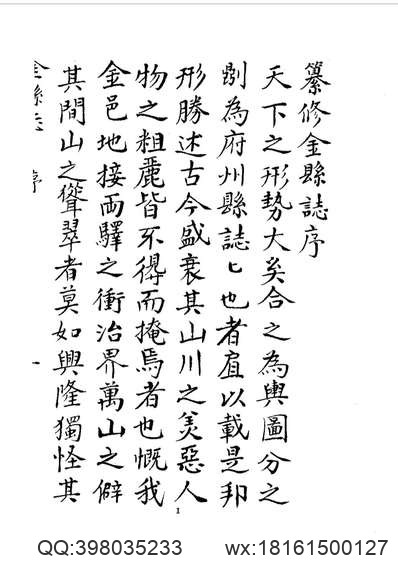 纂修金縣誌序
天下之形勢大矣合之為輿圖分之
則為府州縣誌匕也者眉以載是邦
形勝述古今盛衰其山川之美惡人
物之粗麗皆不得而掩焉者也慨我
金邑地接兩驛之衝治界萬山之僻
其間山之聳翠者莫如興隆獨怪其
金縣志 序 一
1
QQ:398035233 wx:18161500127